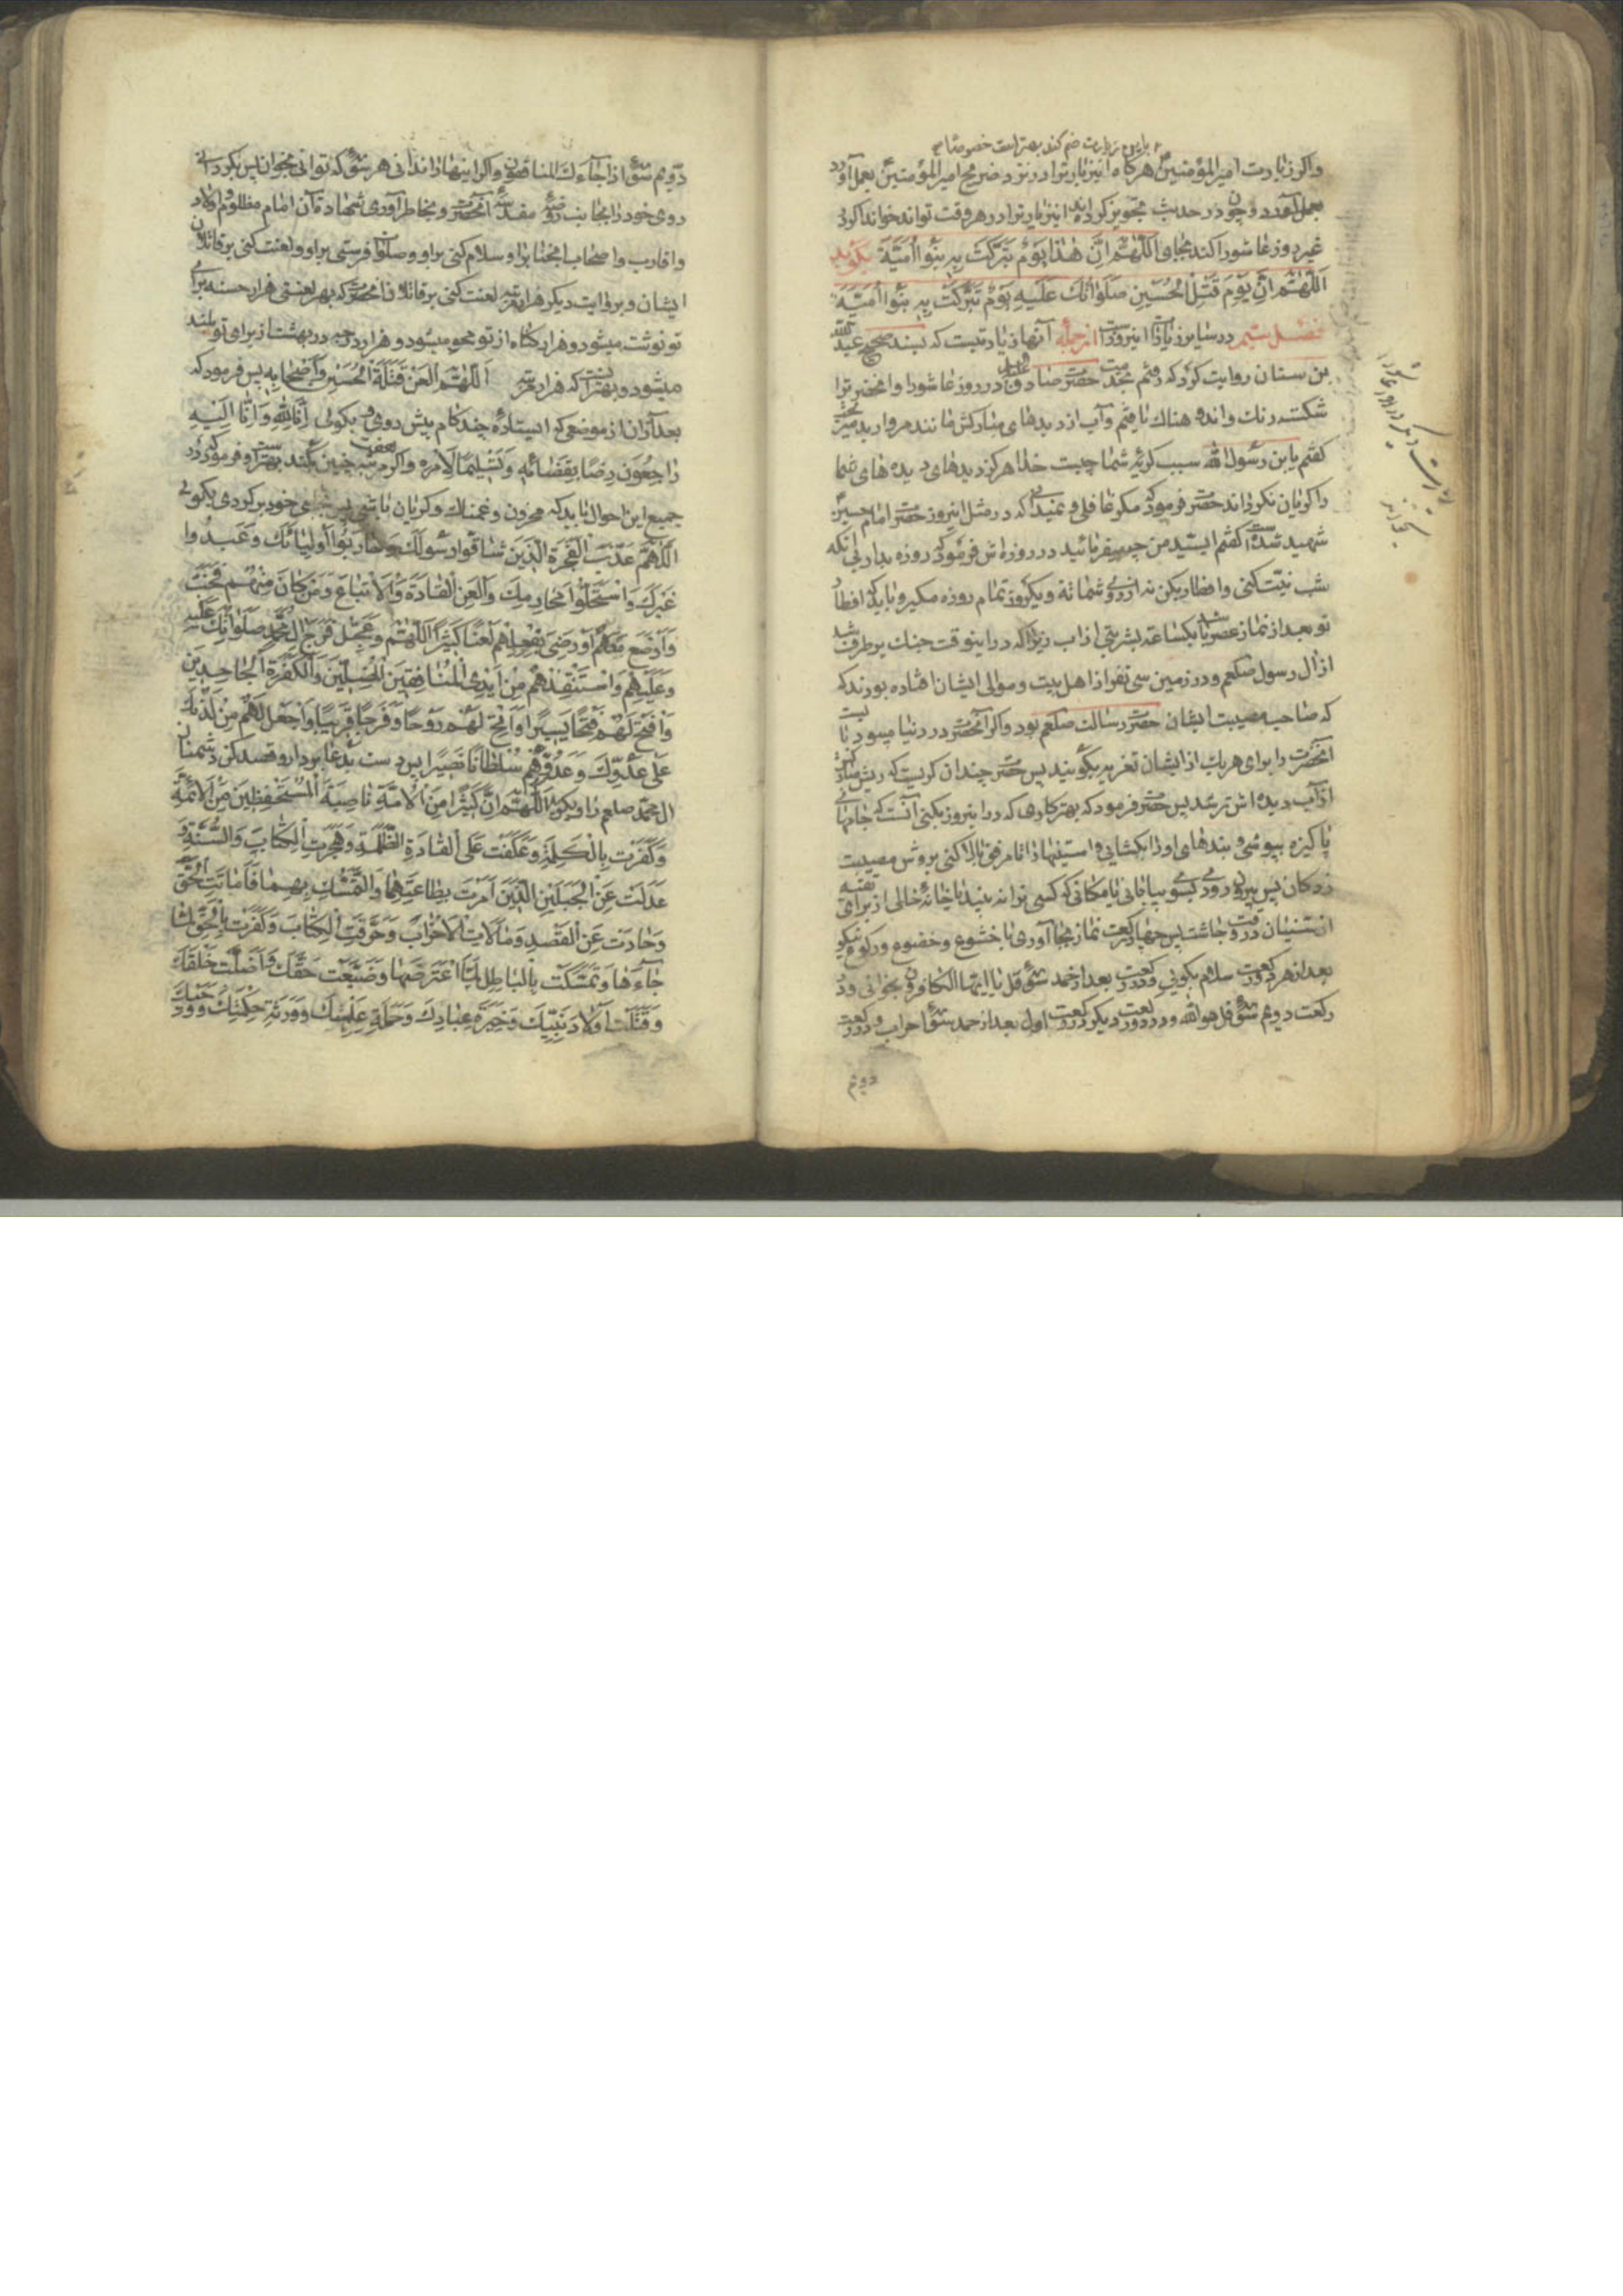 براین زیارت ضم کند بهتر است خصوصا
واکر زیارت امیر المؤمنین هرکاه اینزیارترا در نزد ضریح امیر المؤمنین بعمل آورد
بعمل آورد و چون در حدیث تجویز کرده‌اند اینزیارترا در هر وقت تواند خواند اکر در
غیر روز عاشورا کند بجای اَللّهُمَّ اِنَّ هٰذا یَوْمٌ تَبَرَّکَتْ بِهِ بَنُوا اُمَیَّةَ بکوید
اَللّهُمَّ اِنَّ یَوْمَ قَتْلِ الْحُسَیْنِ صَلَواتُكَ عَلَیْهِ یَوْمٌ تَبَرَّکَتْ بِهِ بَنُوا اُمَیَّةَ
فصل سیم در سایر زیارات اینروز است ازجمله آنها زیارتیست که بسند صحیح عبدالله
بن سنان روایت کرده که رفتم بخدمت حضرت صادق علیه السلام در روز عاشورا وانحضرترا
شکسته رنك واندوهناك یافتم وآب از دیدهای مبارکش مانند مروارید میریخت
کفتم یابن رسول الله سبب کریهٔ شما چیست خدا هرکز دیدهای دیده های شما
را کریان نکرداند حضرت فرمود که مکر غافلی و نمیدانی که در مثل اینروز حضرت امام حسین
شهید شده است کفتم ایسید من چه میفرمائید در روزه اش فرمود که روزه بدار بی انکه
شب نیّت کنی وافطار بکن نه از روی شماتة ویکروز تمام روزه مکیر و باید که افطار
تو بعد از نماز عصر باشد بیکساعة بشربتی از اب زیرا که در اینوقت جنك برطرف شد
از ال رسول صلعم و در زمین سی نفر از اهل بیت و موالی ایشان افتاده بودند که
که صاحب مصیبت ایشان حضرت رسالت صلعم بود واکر آنحضرت در دنیا میبود بایست
انحضرت را برای هریك از ایشان تعزیه بکویند پس حضرت چندان کریست که ریش مبارکش
از آب دیده اش تر شد پس حضرت فرمود که بهتر کاری که در اینروز بکنی آنست که جامهای
پاکیزه بپوشی و بندهای اورا بکشایی و استینها را تا مرفق بالا کنی بروش مصیبت
زدکان پس بیرون روی بسوی بیابانی یا مکانی که کسی ترا نه بیند یا خانهٔ خالی از برای
در وقت چاشت پس چهار رکعت نماز بجا آوری با خشوع وخضوع و رکوع نیکو
بعد از هر دو رکعت سلام بکویی و در رکعت بعد از حمد سورهٔ قل یا ایها الکافرون بخوانی ودر
رکعت دویم سورهٔ قل هو الله و در دو رکعت دیکر در رکعت اول بعد از حمد سورهٔ احزاب ودر رکعت
دویم
زیارت دیکر در روز عاشورا
دویم سورهٔ اذا جاءك المنافقون واکر اینهارا ندانی هر سوره که توانی بخوان پس بکردانی
روی خود را بجانب روضهٔ مقدسهٔ آنحضرت وبخاطر آوری شهادة آن امام مظلوم و اولاد
واقارب واصحاب انجناب را وسلام کنی براو وصلوات فرستی براو ولعنت کنی بر قاتلان
ایشان و بروایت دیکر هزار مرتبه لعنت کنی بر قاتلان آنحضرت که بهر لعنتی هزار حسنه برای
تو نوشته میشود و هزار کناه از تو محو میشود و هزار درجه در بهشت از برای تو بلند
میشود و بهتر آنست که هزار مرتبه اَللّهُمَّ الْعَنْ قَتَلَةَ الْحُسَیْنِ وَاَصْحابِهِ پس فرمود که
بعد از ان از موضعی که ایستادهٔ چند کام پیش روی و بکوئی اِنّا لِلّهِ وَاِنّا اِلَیْهِ
راجِعُونَ رِضًا بِقَضائِهِ وَتَسْلیمًا لِاَمْرِهِ واکر هفت مرتبه چنین بکند بهتر است وفرمود که در
جمیع این احوال باید که محزون و غمناك و کریان باشی پس بجای خود برکردی بکوئی
اَللّهُمَّ عَذِّبِ الْفَجَرَةَ الَّذینَ شاقُّوا رَسُولَكَ وَحارَبُوا اَوْلِیائَكَ وَعَبَدُوا
غَیْرَكَ وَاسْتَحَلُّوا مَحارِمَكَ وَالْعَنِ الْقادَةَ وَالْاَتْباعَ وَمَنْ کانَ مِنْهُمْ فَخَبَّ
وَاَوْضَعَ مَعَهُمْ اَوْ رَضِیَ بِفِعْلِهِمْ لَعْنًا کَثیرًا اَللّهُمَّ وَعَجِّلْ فَرَجَ الِ مُحَمَّدٍ وَاجْعَلْ صَلَواتِكَ عَلَیْهِ
وَعَلَیْهِمْ وَاسْتَنْقِذْهُمْ مِنْ اَیْدِی الْمُنافِقینَ الْمُضِلّینَ وَالْکَفَرَةِ الْجاحِدینَ
وَافْتَحْ لَهُمْ فَتْحًا یَسیرًا وَاَتِحْ لَهُمْ رَوْحًا وَفَرَجًا قَریبًا وَاجْعَلْ لَهُمْ مِنْ لَدُنْكَ
عَلی عَدُوِّكَ وَعَدُوِّهِمْ سُلْطانًا نَصیرًا پس دست بدعا بردار و قصد کن دشمنان
ال محمد صلعم را و بکو اَللّهُمَّ اِنَّ کَثیرًا مِنَ الْاُمَّةِ ناصَبَةِ الْمُسْتَحْفِظینَ مِنَ الْاَئِمَّةِ
وَکَفَرَتْ بِالْکَلِمَةِ وَعَکَفَتْ عَلَی الْقادَةِ الظَّلَمَةِ وَهَجَرَتِ الْکِتابَ وَالسُّنَّةَ وَ
عَدَلَتْ عَنِ الْحَبْلَیْنِ الَّذَیْنِ اَمَرْتَ بِطاعَتِهِما وَالتَّمَسُّكِ بِهِما فَاَماتَتِ الْحَقَّ
وَحادَتْ عَنِ الْقَصْدِ وَمالَأَتِ الْاَحْزابَ وَحَرَّفَتِ الْکِتابَ وَکَفَرَتْ بِالْحَقِّ لَمّا
جاءَها وَتَمَسَّکَتْ بِالْباطِلِ لَمَّا اعْتَرَضَها وَضَیَّعَتْ حَقَّكَ وَاَضَلَّتْ خَلْقَكَ
وَقَتَلَتْ اَوْلادَ نَبِیِّكَ وَخِیَرَةَ عِبادِكَ وَحَمَلَةَ عِلْمِكَ وَوَرَثَةِ حِکْمَتِكَ